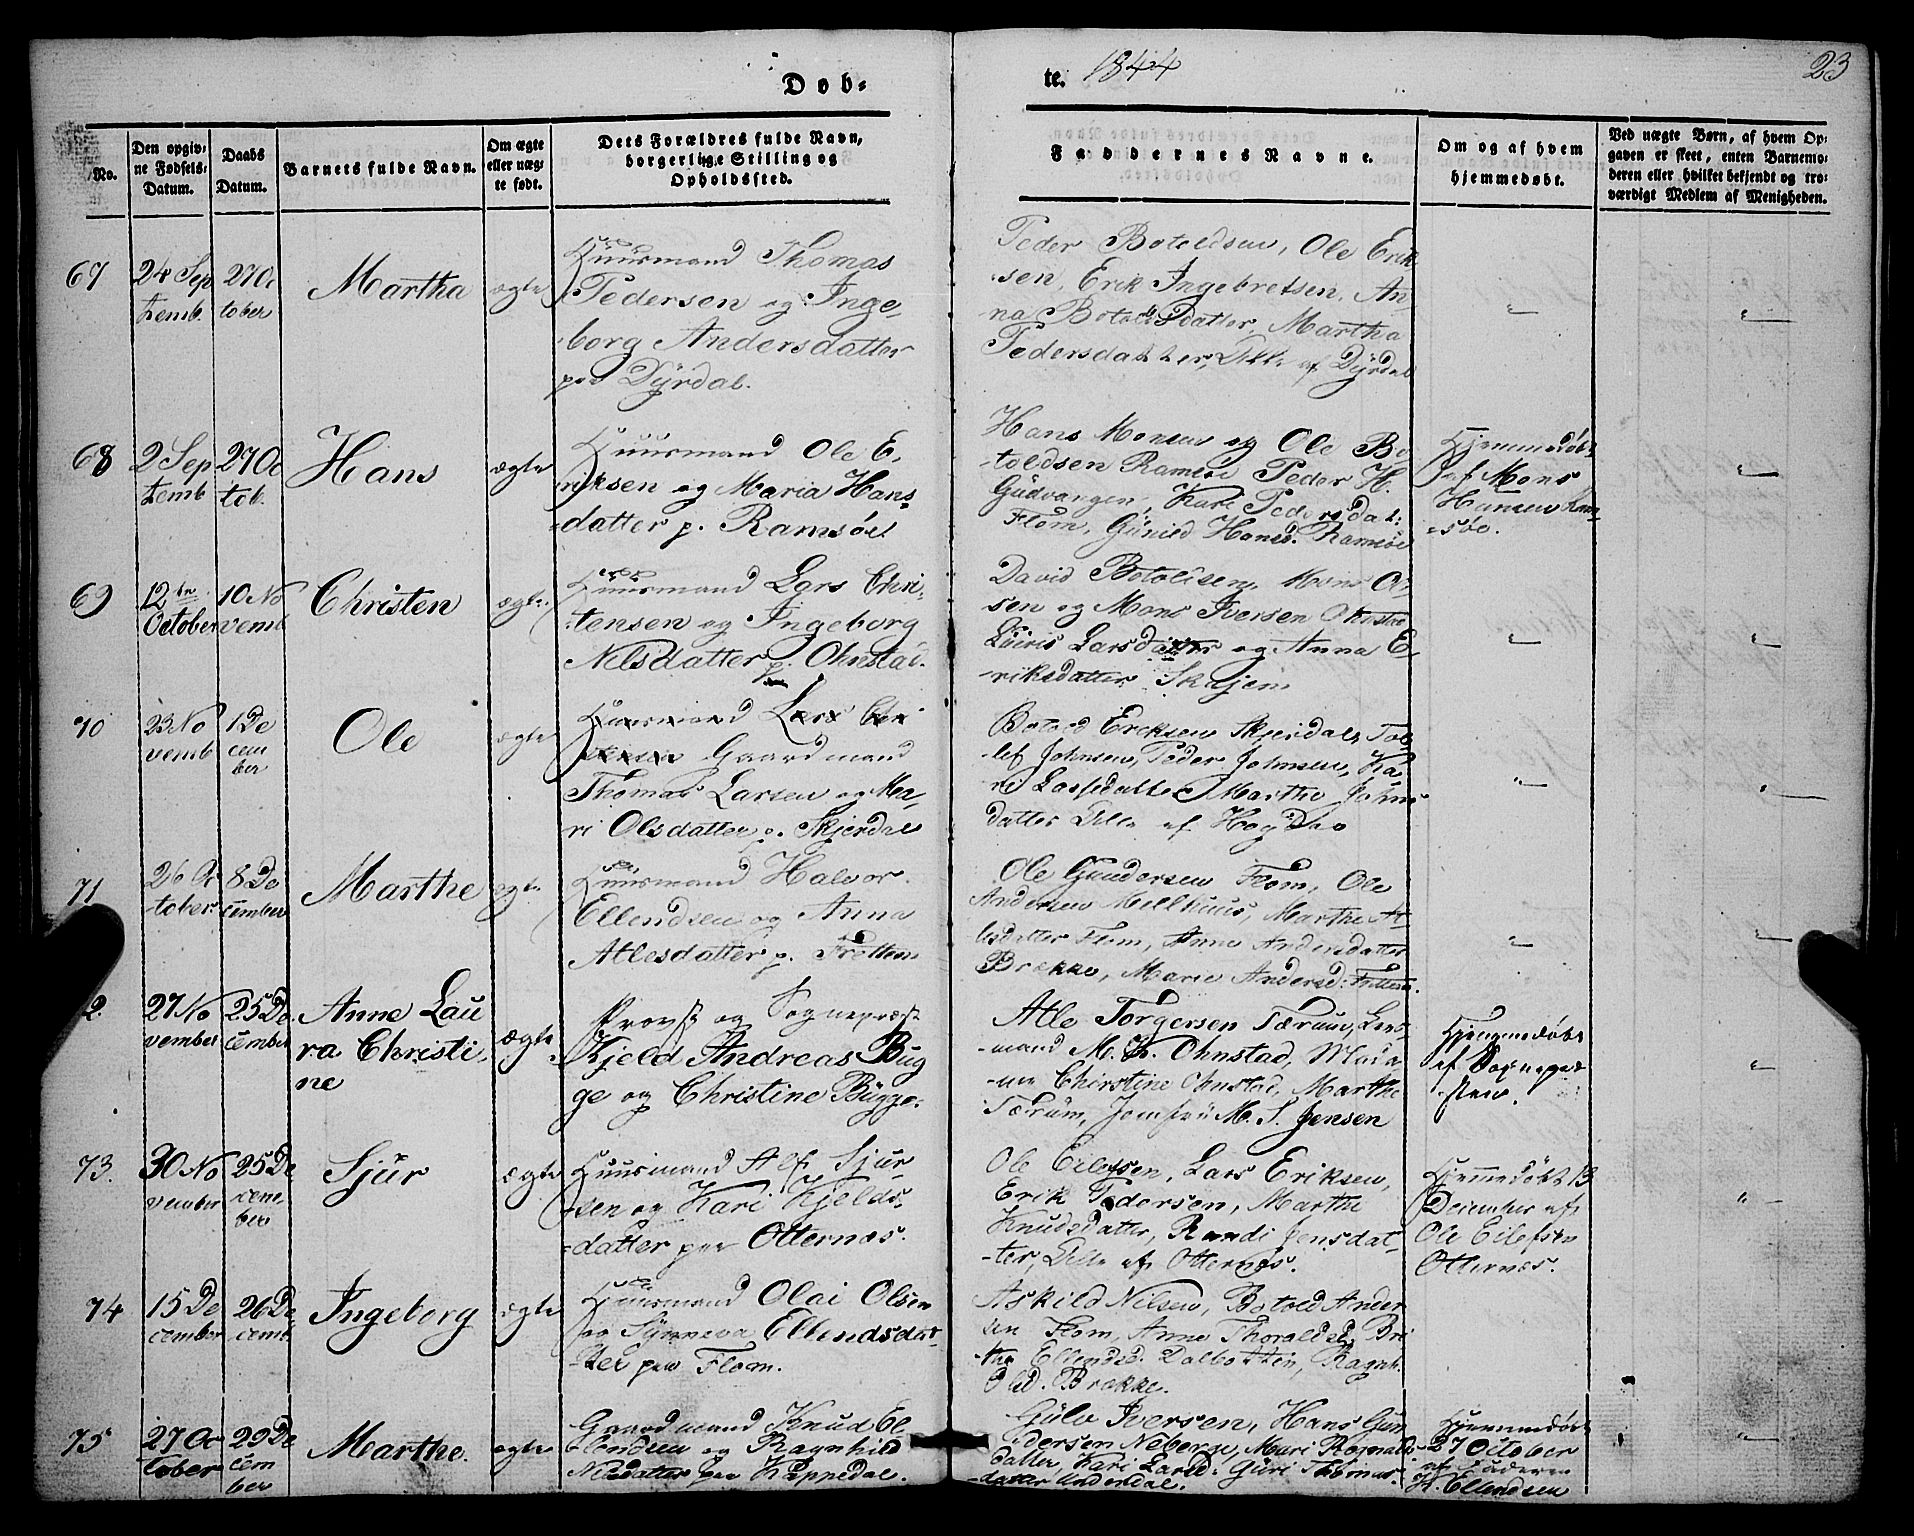 Døb-
te. 1844
23
No.
Den opgiv-
ne Fødsels-
Datum.
Daabs
Datum.
Barnets fulde Navn.
Om ægte
eller uæg-
te født.
Dets Forældres fulde Navn,
borgerlige Stilling og
Opholdssted.
Faddernes Navne.
Om og af hvem
hjemmedøbt.
Ved uægte Børn, af hvem Op-
gaven er skeet, enten Barnemo-
deren eller hvilket bekjendt og tro-
værdigt Medlem af Menigheden.
67
24 Sep
temb.
27 Oc
tober
Martha
ægte
Huusmand Thomas
Pedersen og Inge-
borg Andersdatter
paa Dyrdal.
Peder Botoldsen, Ole Erik
-sen, Erik Ingebretsen, An-
na Botoldsdatter, Martha
Pedersdatter, Alle af Dyrdal
68
2 Sep
temb
27 Oc
tob.
Hans
ægte
Huusmand Ole E-
riksen og Maria Hans-
-datter p. Ramsøe
Hans Monsen og Ole Bo
-toldsen Ramsøe Peder H.
Gudvangen, Kari Pedersdat:
Flom, Gunild Hansd. Ramsøe
Hjemmedøbt
af Mons
Hansen Ram-
-søe.
69
12te
October
10 No
vemb
Christen
ægte.
Huusmand Lars Chri-
-stensen og Ingeborg
Nilsdatter p. Ohnstad.
David Botolfsen, Mons Ol-
sen og Mons Iversen Ohnstad
Larsdatter og Anna E-
-riksdatter Skajem
70
23 No
vemb
1 De
cem
ber
Ole
ægte
Huusmand Lars Chri
stensen Gaardmand
Thomas Larsen og Ma-
ri Olsdatter p. Skjerdal
Botold Eriksen Skjerdal, Tol-
lef Johnsen, Peder Johnsen, Ka-
ri Lassedatter Marthe Johns
datter Alle af
71
26 Oc
tober
8 De
cember
Marthe
ægte
Huusmand Halvor
Ellendsen og Anna
Atlesdatter p. Frettem
Ole Gundersen Flom, Ole
Andersen Mellhuus, Marthe At-
lesdatter Flom, Anne Andersdatter
Brække, Marie Andersd: Frettem.
2.
27 No
vember
25 De
cember
Anne Lau
ra Christi-
ne
ægte
Provst og Sognepræst
Kjeld Andreas Bug
ge og Christine Bugge.
Atle Torgersen Tærum, Lens-
-mand M. K. Ohnstad, Mada-
-me Chirstine Ohnstad, Marthe
Tærum, Jomfru M. S. Jensen
Hjemmedøbt
af Sognepræ
-sten.
73.
30 No
vember
25 De
cem-
ber
Sjur
ægte
Huusmand Alf Sjur
-sen og Kari Kjelds-
-datter paa Otternæs.
Ole Eilefsen, Lars Eriksen,
Erik Pedersen, Marthe
Knudsdatter, Randi Jensdat-
-ter, Alle af Otternæs.
Hjemmedøbt 13
December af
Ole Eilefsen
Otternæs.
74
15 De
cember
26 De
cemb.
Ingeborg
ægte
Huusmand Olai Olsen
og Synneva Ellendsdat-
-ter paa Flom.
Askild Nilsen, Botold Ander
sen Flom, Anne Thoraldsd, Bri
-the Ellendsd. Dalbotten, Ragnh.
Olsd. Brække.
75
27 Oc
tober
29 De
cem
ber
Marthe.
ægte
Gaardmand Knud El
-lendsen og Ragnhild
Nilsdatter paa Kappedal.
Gulv Iversen, Hans Gun
-dersen Neberge, Mari Ragnalds-
datter, Kari Larsd: Guri Thomas-
-datter Underdal.
Hjemmedøbt
27 October
af Faderen
K. Ellendsen